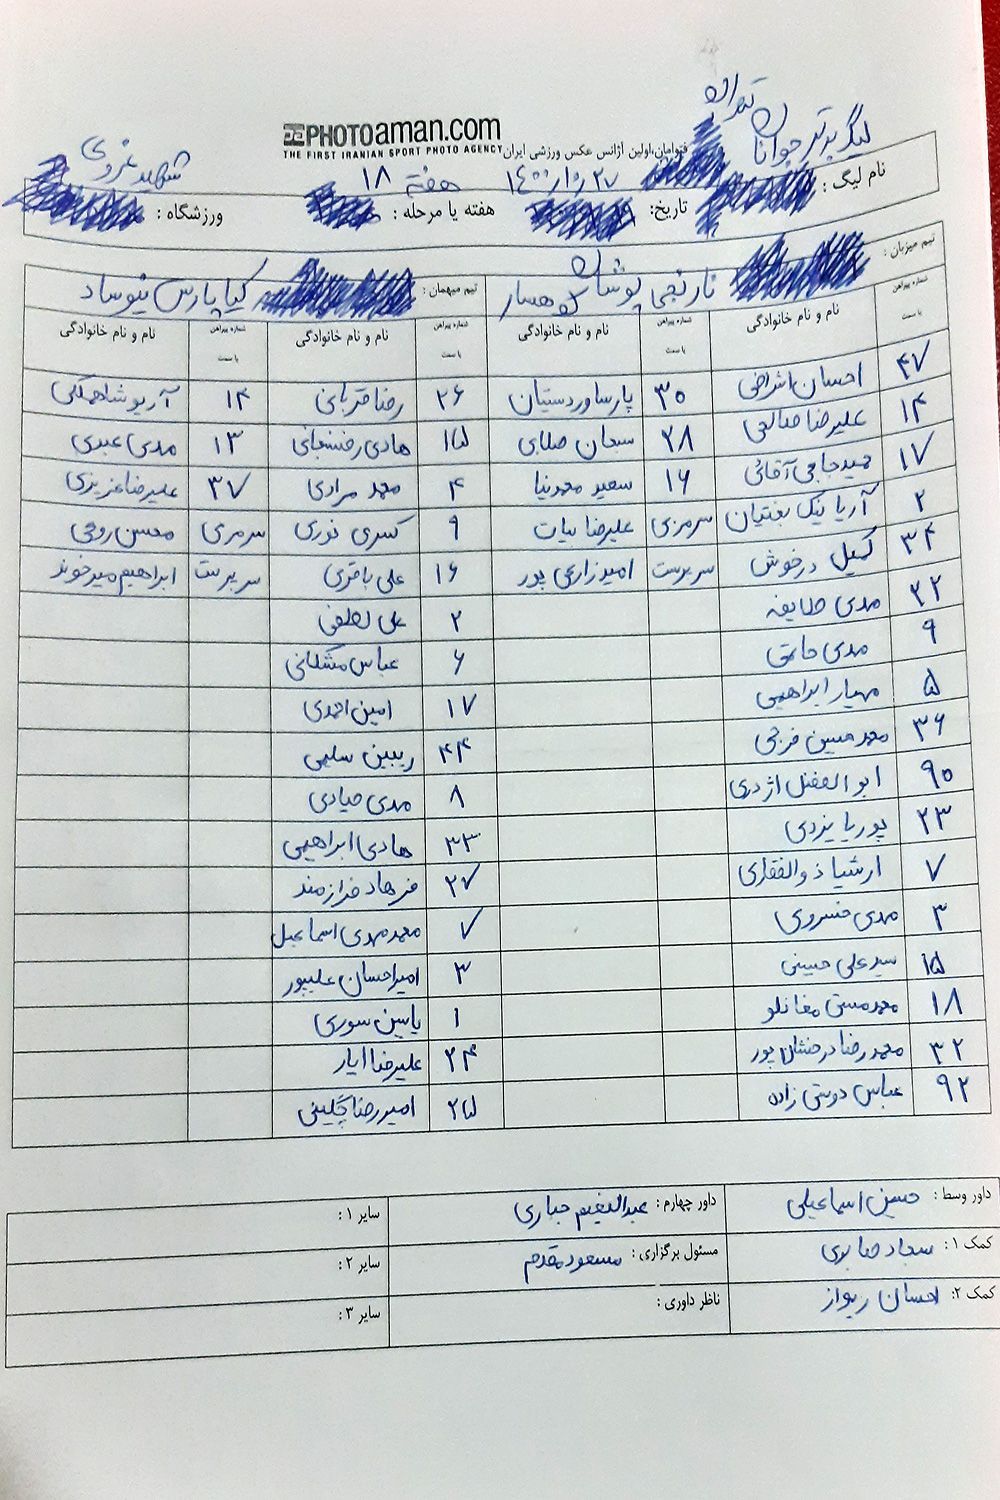 PHOTOaman.com
THE FIRST IRANIAN SPORT PHOTO AGENCY
فتوامان،اولین آژانس عکس ورزشی ایران
نام لیگ : لیگ برتر جوانان تهران
تاریخ: ۱۴۰۰/۱۰/۲۷
هفته یا مرحله : هفته ۱۸
ورزشگاه : شهید غروی
تیم میزبان : نارنجی پوشان کوهسار
تیم میهمان : کیا پارس نیوساد
شماره پیراهن یا سمت نام و نام خانوادگی شماره پیراهن یا سمت نام و نام خانوادگی شماره پیراهن یا سمت نام و نام خانوادگی شماره پیراهن یا سمت نام و نام خانوادگی
۴۷ احسان اشراقی ۳۰ پارسا وردستیان ۲۶ رضا قربانی ۱۴ آریو شاهملکی
۱۴ علیرضا صالحی ۲۸ سبحان صلابی ۱۵ هادی رفسنجانی ۱۳ مهدی عبدی
۱۷ حمید حاجی آقائی ۱۶ سعید محمدنیا ۴ محمد مرادی ۳۷ علیرضا عزیزی
۲ آریا نیک بختیان سرمربی علیرضا بیات ۹ کسری نوری سرمربی محسن روحی
۳۴ کمیل درخوش سرپرست امیر زارعی پور ۱۶ علی باقری سرپرست ابراهیم میرخوند
۲۲ مهدی طایفه ۲ علی لطفی
۹ مهدی حاذق ۶ عباس مشکانی
۵ مهیار ابراهیمی ۱۷ امین احمدی
۳۶ محمد حسین فرجی ۴۴ ریبین سلیمی
۹۰ ابوالفضل اژدری ۸ مهدی صیادی
۲۳ پوریا یزدی ۳۳ هادی ابراهیمی
۷ ارشیا ذوالفقاری ۲۷ فرهاد فرازمند
۳ مهدی خسروی ۷ محمد مهدی اسماعیل
۱۵ سید علی حسینی ۳ امیراحسان علیپور
۱۸ محمد متین مغانلو ۱ یاسین سوری
۳۲ محمدرضا درخشان پور ۲۴ علیرضا ایار
۹۲ عباس دوستی زاده ۲۵ امیررضا چگینی
داور وسط : حسین اسماعیلی داور چهارم : عبدالنعیم جباری سایر ۱ :
کمک ۱ : سجاد صابری مسئول برگزاری : مسعود مقدم سایر ۲ :
کمک ۲: احسان ریواز ناظر داوری : سایر ۳ :